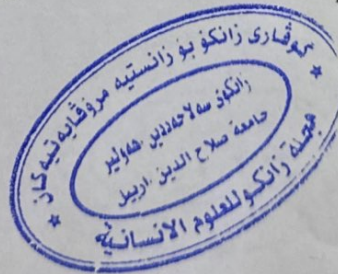 گوڤاری زانكۆ بۆ زانستیه مرۆڤایه تیه كان
زانكۆی سه لاحه ددین - هه ولێر
جامعة صلاح الدين - اربيل
مجلة زانكو للعلوم الانسانية